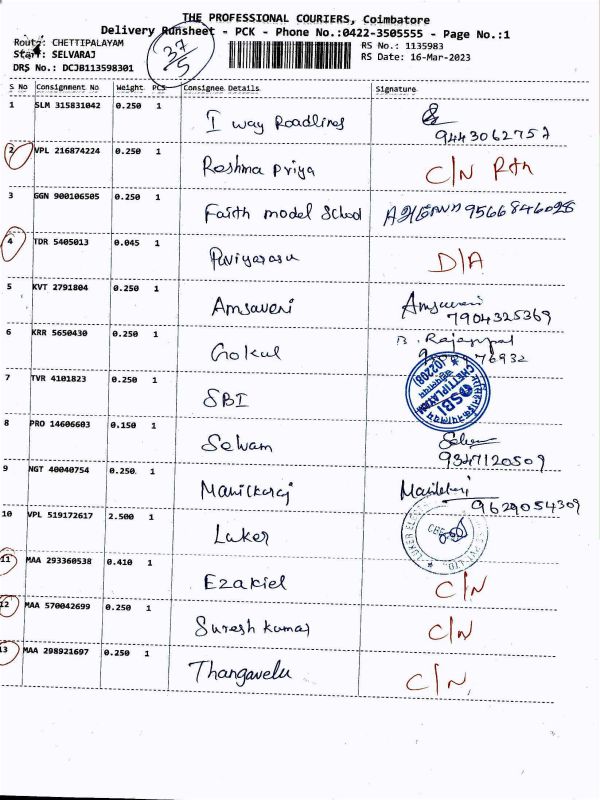 THE PROFESSIONAL COURIERS, Coimbatore
Delivery Runsheet - PCK - Phone No.:0422-3505555 - Page No.:1
Route: CHETTIPALAYAM
37/5
RS No.: 1135983
Staff: SELVARAJ
RS Date: 16-Mar-2023
DRS No.: DCJB113598301
S No Consignment No Weight PCS Consignee Details Signature
1 SLM 315831042 0.250 1
I way Roadlines
9443062757
2 VPL 216874224 0.250 1
Reshma Priya C/N Rtn
3 GGN 900106505 0.250 1
Faith model School 9566846028
4 TDR 5405013 0.045 1
Puviyarasu D/A
5 KVT 2791804 0.250 1
Amsaveni Amsaveni
7904325369
6 KRR 5650430 0.250 1
Gokul B. Rajappal
76932
7 TVR 4101823 0.250 1
SBI
SBI
CHETTIPALAYAM
8 PRO 14606603 0.150 1
Selvam Selvam
9347120509
9 NGT 40040754 0.250 1
Manickaraj
9629054309
10 VPL 519172617 2.500 1
Luker
LUKER
CBE
11 MAA 293360538 0.410 1
Ezakiel C/N
12 MAA 570042699 0.250 1
Suresh kumar C/N
13 MAA 298921697 0.250 1
Thangavelu C/N